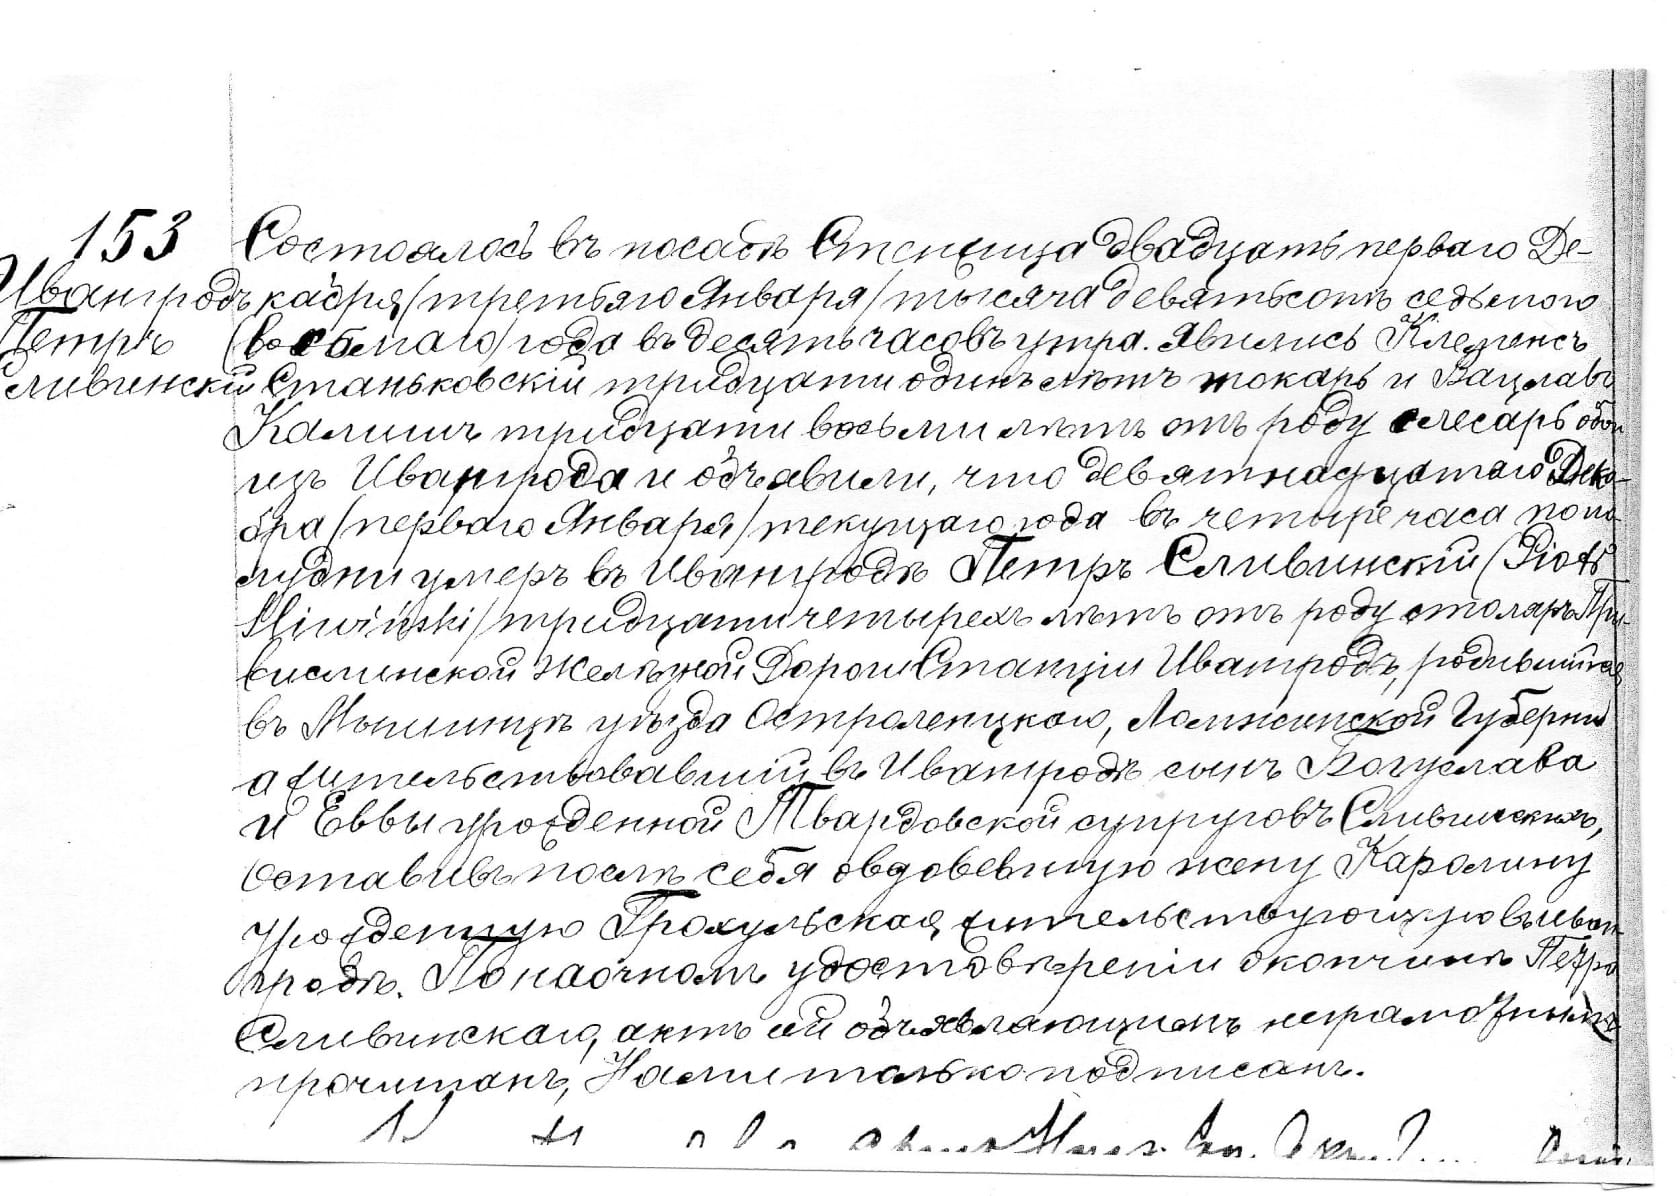 153
Ивангродъ
Петръ
Сливинскій
Состоялось въ посадѣ Стенжица двадцать перваго Де-
кабря /третьяго Января/ тысяча девятьсотъ седьмого
/восьмаго/ года въ десять часовъ утра. Явились Клеменсъ
Станьковскій тридцати одинъ лѣтъ токарь и Вацлавъ
Калишъ тридцати восьми лѣтъ отъ роду слесарь обои
изъ Ивангрода и объявили, что девятнадцатаго Дека-
бря /перваго Января/ текущаго года въ четыре часа попо-
лудни умеръ въ Ивангродѣ Петръ Сливинскій /Piotr
Sliwiński/ тридцати четырехъ лѣтъ отъ роду столяръ При-
вислинской Желѣзной Дороги Станціи Ивангродъ, родившійся
въ Мышинцѣ уѣзда Остроленцкаго, Ломжинской Губерніи
а жительствовавшій въ Ивангродѣ сынъ Богуслава
и Еввы урожденной Твардовской супруговъ Сливинскихъ,
оставивъ послѣ себя овдовевшую жену Каролину
урожденную Грохульская, жительствующую въ Иван-
гродѣ. По наочномъ удостовѣреніи о кончинѣ Петра
Сливинскаго, актъ сей объявляющимъ неграмотнымъ
прочитанъ, Нами только подписанъ.